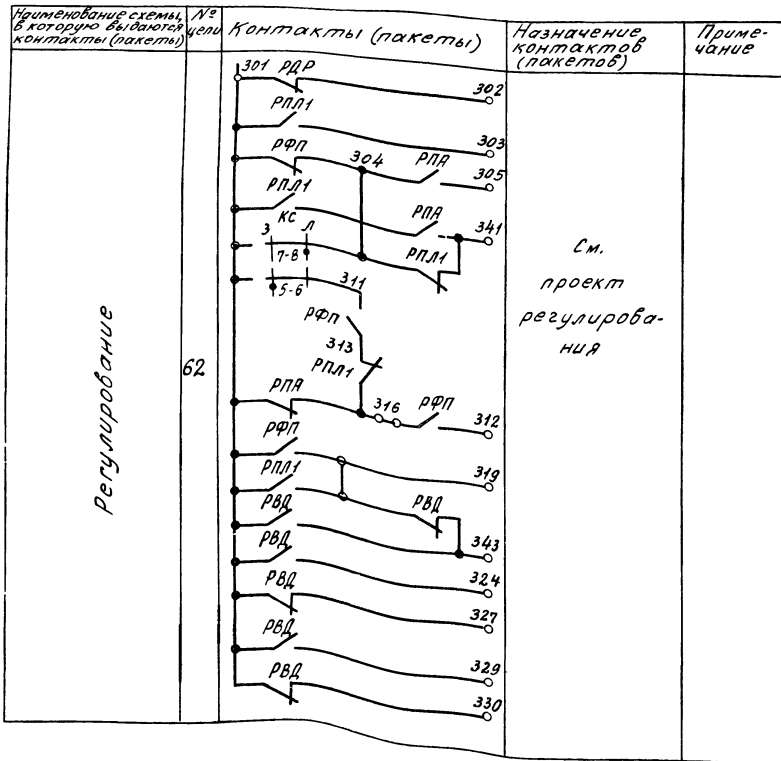 Наименование схемы,
в которую выдаются
контакты (пакеты)
№
цепи
Контакты (пакеты)
Назначение
контактов
(пакетов)
Приме-
чание
301 РДР 302
РПЛ1 303
РФП 304 РПА 305
РПЛ1 РПА 341
З КС Л
7-8 РПЛ1
5-6 311
РФП
313
РПЛ1
РПА 316 РФП 312
РФП 319
РПЛ1
РВД
РВД 343
РВД 324
РВД 327
РВД 329
РВД 330
Регулирование
62
См.
проект
регулирова-
ния